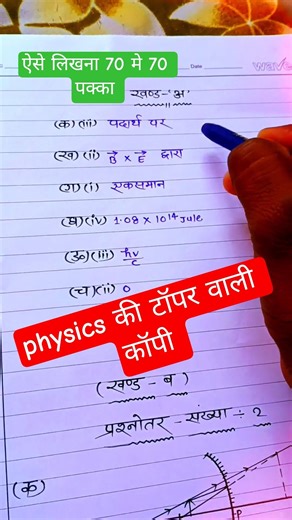 ऐसे लिखना 70 मे 70
पक्का
Date
खण्ड-'अ'
(क) (iii) पदार्थ पर
(ख) (ii) B⃗ × E⃗ द्वारा
(ग) (i) एकसमान
(घ) (iv) 1.08 × 10¹⁴ Jule
(ङ) (iii) hν/c
(च) (ii) 0
physics की टॉपर वाली
कॉपी
(खण्ड - ब)
प्रश्नोतर - संख्या ÷ 2
(क)
P